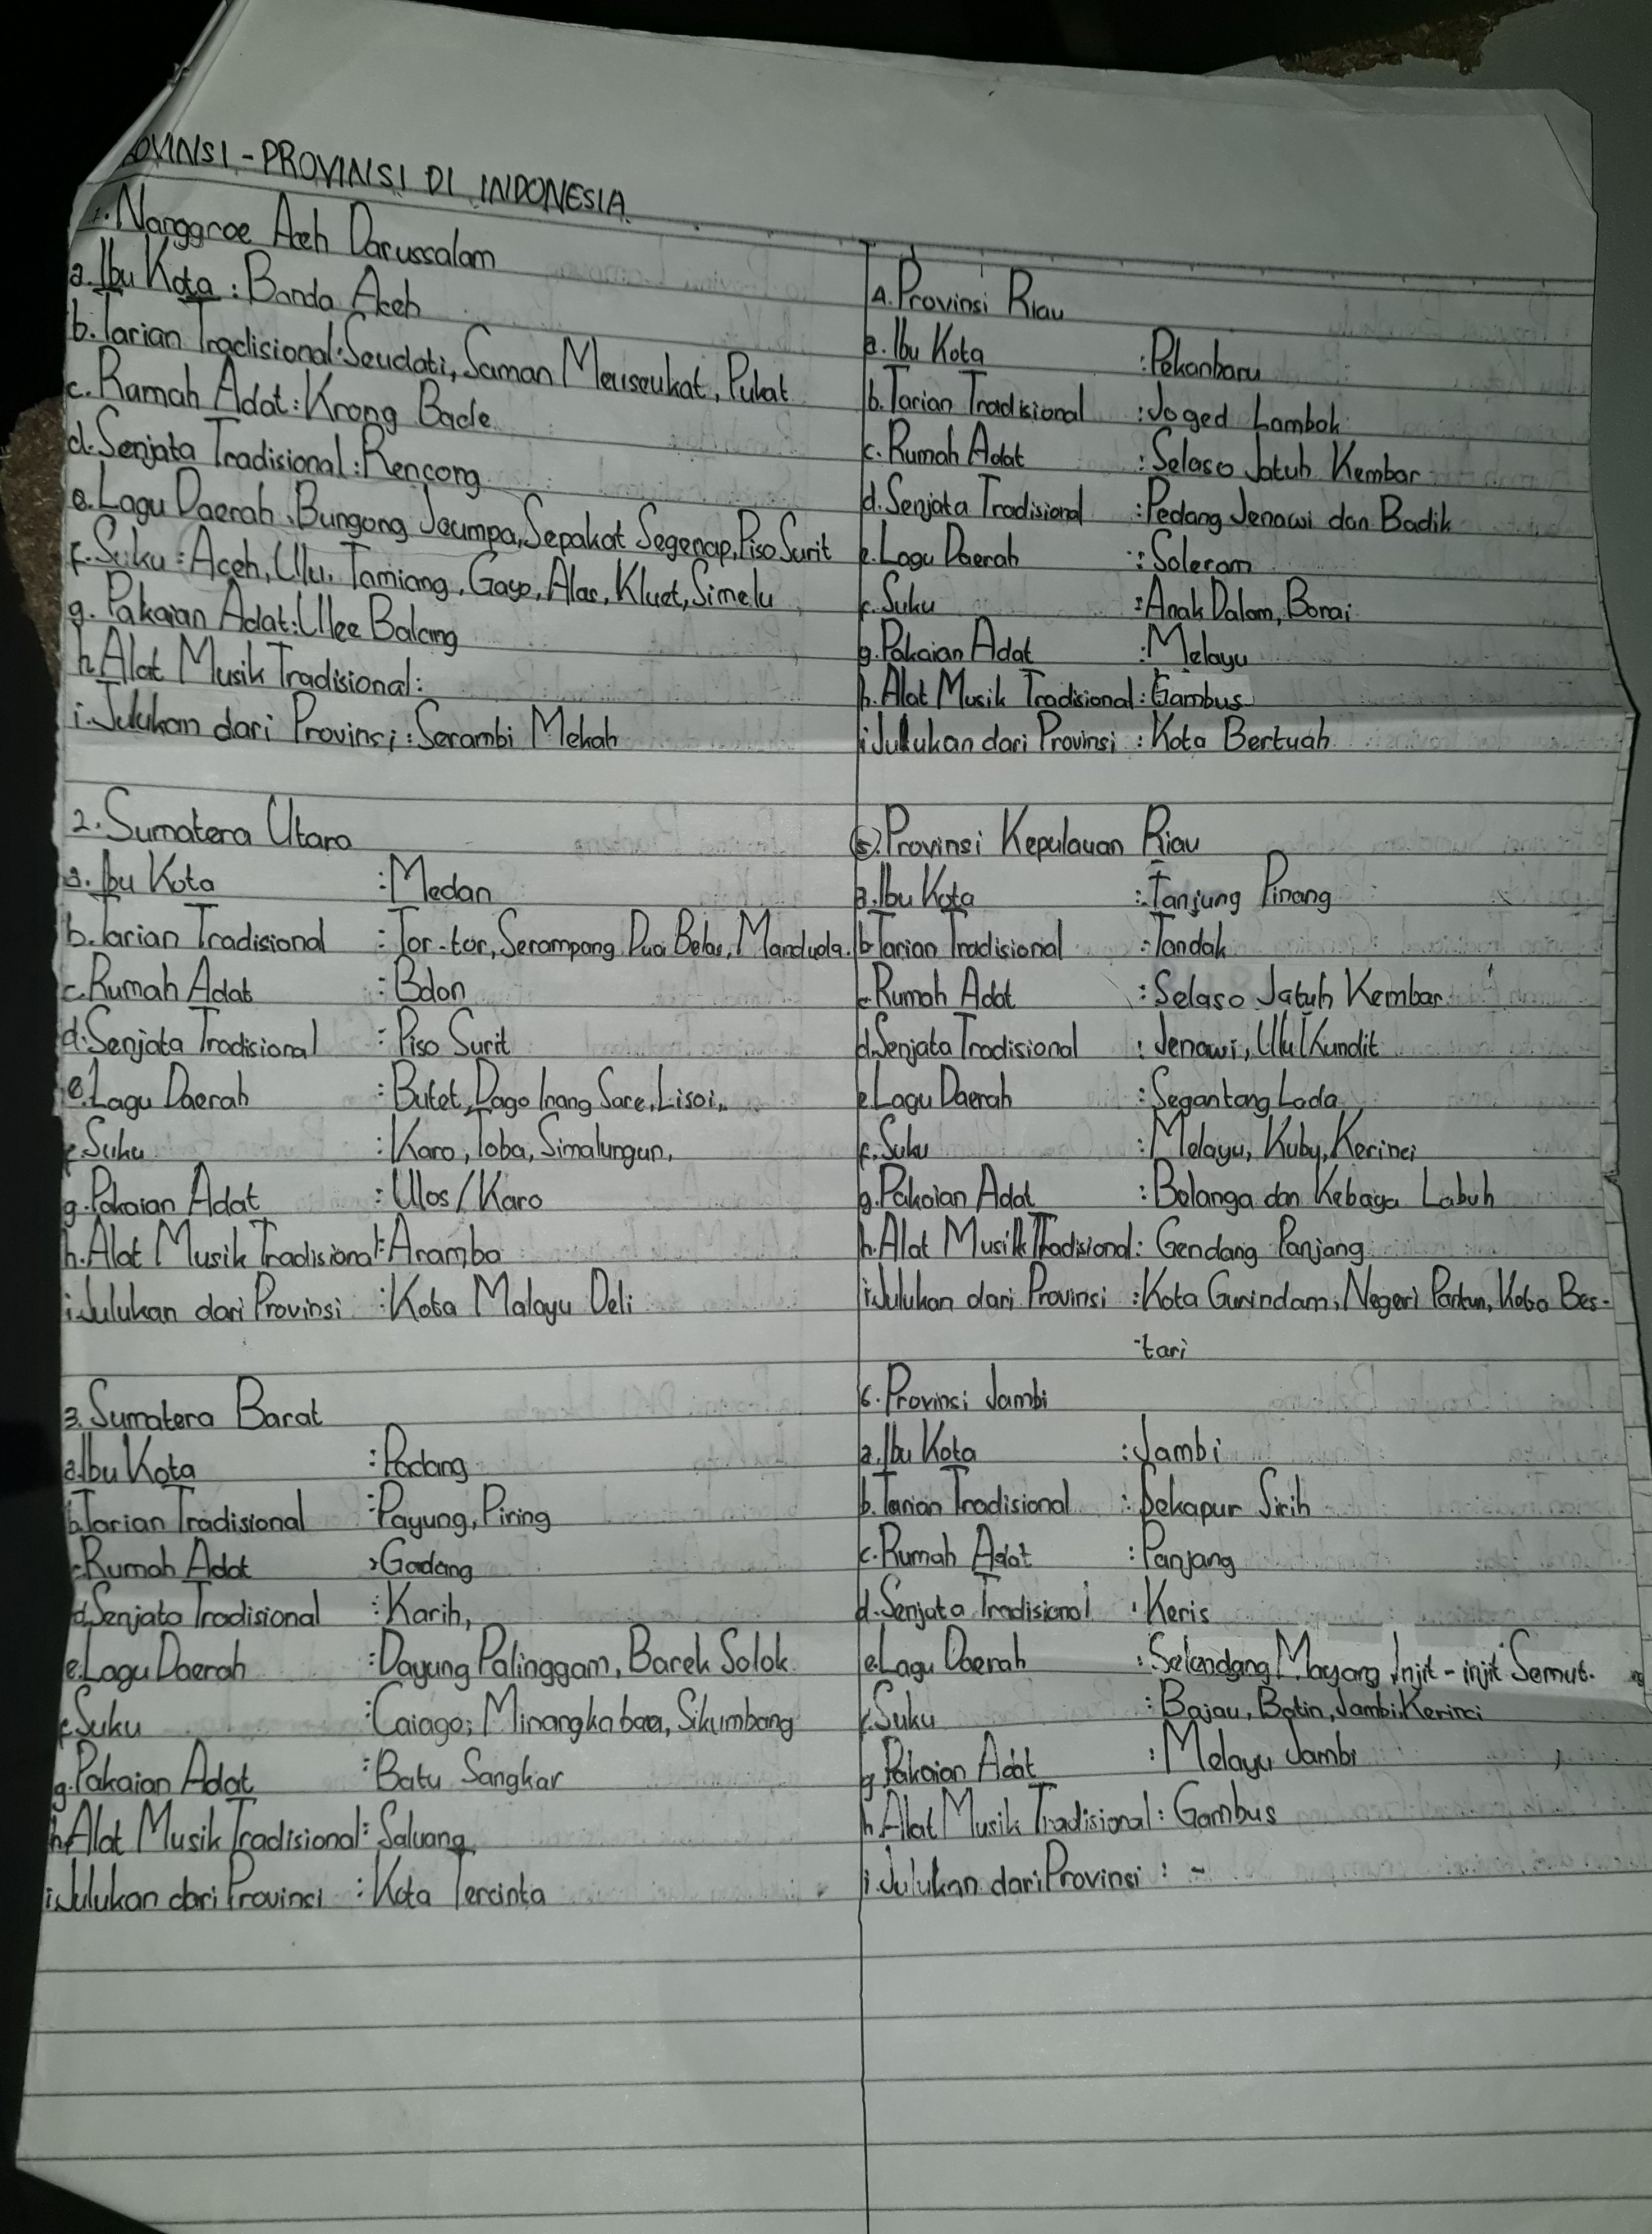 OVINSI - PROVINSI DI INDONESIA
1. Nanggroe Aceh Darussalam
a. Ibu Kota : Banda Aceh
b. Tarian Tradisional : Seudati, Saman Meuseukat, Pukat
c. Rumah Adat : Krong Bade
d. Senjata Tradisional : Rencong
e. Lagu Daerah : Bungong Jeumpa, Sepakat Segenap, Piso Surit
f. Suku : Aceh, Ulu, Tamiang, Gayo, Alas, Kluet, Simelu
g. Pakaian Adat : Ulee Balang
h. Alat Musik Tradisional :
i. Julukan dari Provinsi : Serambi Mekah
2. Sumatera Utara
a. Ibu Kota : Medan
b. Tarian Tradisional : Tor-tor, Serampang Dua Belas, Manduda.
c. Rumah Adat : Bolon
d. Senjata Tradisional : Piso Surit
e. Lagu Daerah : Butet, Dago Inang Sare, Lisoi,
f. Suku : Karo, Toba, Simalungun,
g. Pakaian Adat : Ulos/Karo
h. Alat Musik Tradisional : Aramba
i. Julukan dari Provinsi : Kota Malayu Deli
3. Sumatera Barat
a. Ibu Kota : Padang
b. Tarian Tradisional : Payung, Piring
c. Rumah Adat : Gadang
d. Senjata Tradisional : Karih,
e. Lagu Daerah : Dayung Palinggam, Barek Solok
f. Suku : Caiago, Minangkabau, Sikumbang
g. Pakaian Adat : Batu Sangkar
h. Alat Musik Tradisional : Saluang
i. Julukan dari Provinsi : Kota Tercinta
4. Provinsi Riau
a. Ibu Kota : Pekanbaru
b. Tarian Tradisional : Joged Lambak
c. Rumah Adat : Selaso Jatuh Kembar
d. Senjata Tradisional : Pedang Jenawi dan Badik
e. Lagu Daerah : Soleram
f. Suku : Anak Dalam, Bonai
g. Pakaian Adat : Melayu
h. Alat Musik Tradisional : Gambus
i. Julukan dari Provinsi : Kota Bertuah
5. Provinsi Kepulauan Riau
a. Ibu Kota : Tanjung Pinang
b. Tarian Tradisional : Tandak
c. Rumah Adat : Selaso Jatuh Kembar
d. Senjata Tradisional : Jenawi, Ulu Kundit
e. Lagu Daerah : Segantang Lada
f. Suku : Melayu, Kuby, Kerinci
g. Pakaian Adat : Belanga dan Kebaya Labuh
h. Alat Musik Tradisional : Gendang Panjang
i. Julukan dari Provinsi : Kota Gurindam, Negeri Pantun, Kota Bes-
tari
6. Provinsi Jambi
a. Ibu Kota : Jambi
b. Tarian Tradisional : Sekapur Sirih
c. Rumah Adat : Panjang
d. Senjata Tradisional : Keris
e. Lagu Daerah : Selendang Mayang, Injit-injit Semut.
f. Suku : Bajau, Batin, Jambi, Kerinci
g. Pakaian Adat : Melayu Jambi
h. Alat Musik Tradisional : Gambus
i. Julukan dari Provinsi : -